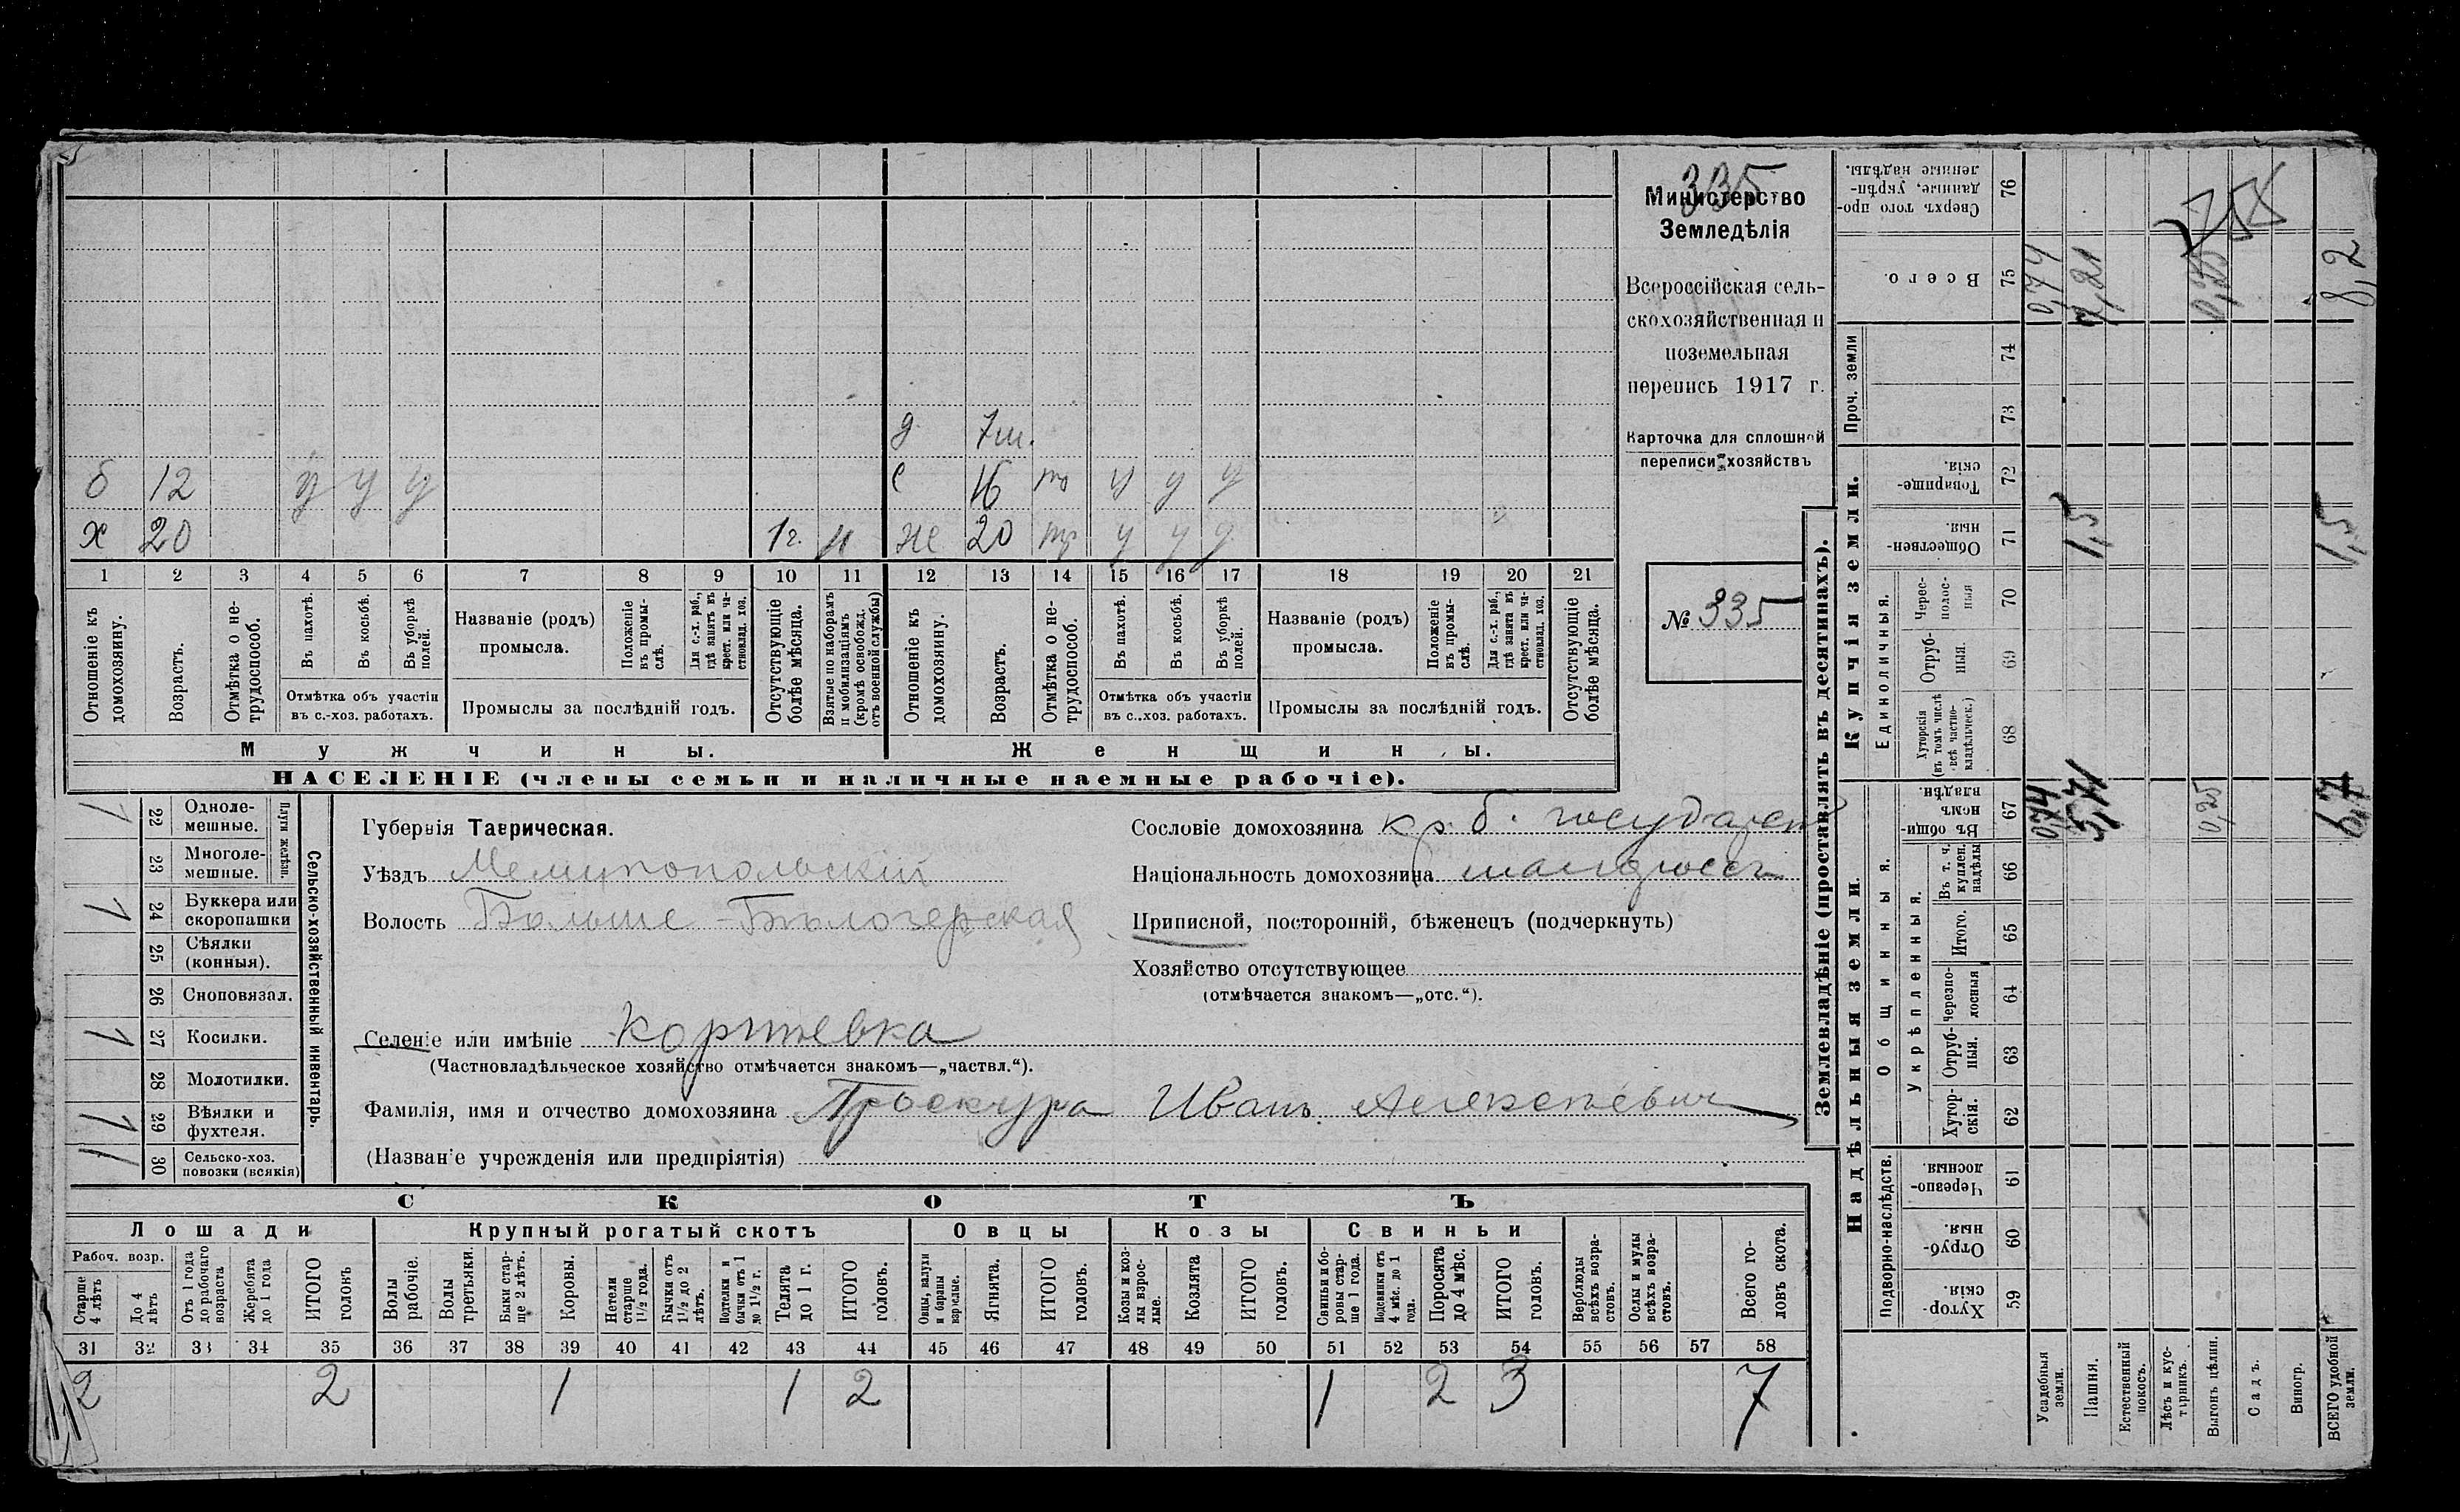 335
Министерство
Земледѣлія
Всероссійская сель-
скохозяйственная и
поземельная
перепись 1917 г.
Карточка для сплошной
переписи хозяйствъ
№ 335
д 7м.
б 12 у у у
с 16 у у у
х 20 1г. ж 20 у у у
1 2 3 4 5 6 7 8 9 10 11 12 13 14 15 16 17 18 19 20 21
Отношеніе къ домохозяину.
Возрастъ.
Отмѣтка о не-трудоспособ.
Въ пахотѣ.
Въ косьбѣ.
Въ уборкѣ полей.
Отмѣтка объ участіи
въ с.-хоз. работахъ.
Названіе (родъ)
промысла.
Положеніе въ промы-слѣ.
Для с.-х. раб., гдѣ занятъ въ крест. или ча-стновлад. хоз.
Промыслы за послѣдній годъ.
Отсутствующіе болѣе мѣсяца.
Взятые по наборамъ и мобилизаціямъ (кромѣ освобожд. отъ военной службы)
Отношеніе къ домохозяину.
Возрастъ.
Отмѣтка о не-трудоспособ.
Въ пахотѣ.
Въ косьбѣ.
Въ уборкѣ полей.
Отмѣтка объ участіи
въ с..хоз. работахъ.
Названіе (родъ)
промысла.
Положеніе въ промы-слѣ.
Для с.-х. раб., гдѣ занята въ крест. или ча-стновлад. хоз.
Промыслы за послѣдній годъ.
Отсутствующіе болѣе мѣсяца.
Мужчины. Женщины.
НАСЕЛЕНІЕ (члены семьи и наличные наемные рабочіе).
Сельско-хозяйственный инвентарь.
Плуги желѣзн.
1 22 Одноле-мешные.
23 Многоле-мешные.
1 24 Буккера или скоропашки
25 Сѣялки (конныя).
26 Сноповязал.
1 27 Косилки.
28 Молотилки.
1 29 Вѣялки и фухтеля.
1 30 Сельско-хоз. повозки (всякія)
Губернія Таврическая.
Уѣздъ Мелитопольскій
Волость Больше-Бѣлозерская
Селеніе или имѣніе
(Частновладѣльческое хозяйство отмѣчается знакомъ—„частвл.“).
Фамилія, имя и отчество домохозяина Проскура Иванъ Алексѣевич
(Названіе учрежденія или предпріятія)
Сословіе домохозяина кр. б. государст
Національность домохозяина малоросс
Приписной, посторонній, бѣженецъ (подчеркнуть)
Хозяйство отсутствующее
(отмѣчается знакомъ—„отс.“).
СКОТЪ
Лошади Крупный рогатый скотъ Овцы Козы Свиньи
Рабоч. возр.
Старше 4 лѣтъ
До 4 лѣтъ
Отъ 1 года до рабочаго возраста
Жеребята до 1 года
ИТОГО головъ
Волы рабочіе.
Волы третьяки.
Быки стар-ще 2 лѣтъ.
Коровы.
Нетели старше 1½ года.
Бычки отъ 1½ до 2 лѣтъ.
Подтелки и бычки отъ 1 до 1½ г.
Телята до 1 г.
ИТОГО головъ.
Овцы, валухи и бараны взрослые.
Ягнята.
ИТОГО головъ.
Козы и коз-лы взрос-лые.
Козлята
ИТОГО головъ.
Свиньи и бо-ровы стар-ше 1 года.
Подсвинки отъ 4 мѣс. до 1 года.
Поросята до 4 мѣс.
ИТОГО головъ.
Верблюды всѣхъ возра-стовъ.
Ослы и мулы всѣхъ возра-стовъ.
Всего го-ловъ скота.
31 32 33 34 35 36 37 38 39 40 41 42 43 44 45 46 47 48 49 50 51 52 53 54 55 56 57 58
2 2 1 1 2 1 2 3 7
Землевладѣніе (проставлять въ десятинахъ).
Надѣльныя земли. Купчія земли.
Проч. земли
Подворно-наслѣдств.
Общинныя.
Укрѣпленныя.
Единоличныя.
Хутор-скія. 59
Отруб-ныя. 60
Черезпо-лосныя. 61
Хутор-скія. 62
Отруб-ныя. 63
Черезпо-лосныя 64
Итого. 65
Въ т. ч. куплен. надѣлы 66
Въ общин-номъ владѣн. 67
Хуторскія (въ томъ числѣ всѣ частно-владѣльческ.) 68
Отруб-ныя. 69
Черес-полос-ныя 70
Обществен-ныя. 71
Товарище-скія. 72
73
74
Всего. 75
Сверхъ того про-данные, укрѣп-ленные надѣлы. 76
Усадебныя земли. 0,74 0,74
Пашня. 5,71 1,5 7,21
Естественный покосъ.
Лѣсъ и кус-тарникъ.
Выгонъ цѣлин. 0,25 0,25
Садъ.
Виногр.
ВСЕГО удобной земли. 6,7 1,5 8,2